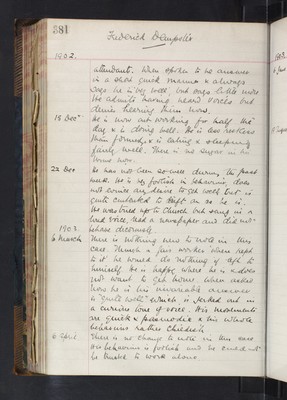 381
Frederick
1902.
attendants. When spoken to he answers
in a short quick manner & always
says he is very well, but says little more
He admits having heard voices but
denies hearing them now.
15 Dec
He is now out working for half the
day & is doing well. He is less restless
than formerly & is eating & sleeping
fairly well. There is no sugar in his
urine now.
22 Dec
He has not been so well during the past
week. He is very foolish in behaviour, does
not evince any desire to get well but is
quite contented to stay on as he is.
He was tried up to Church but sang in a
loud voice, read a newspaper and did not
behave decorously.
1903
6 March
There is nothing new to note in this
case. Though a worker when
to it he would do nothing if left to
himself. He is happy where he is & does
not want to get home. When asked
how he is his invariable answer
is "quite well" which is jerked out in
a curious tone of voice. His movements
are quick & spasmodic & his whole
behaviour rather childish
6 April
There is no change to note in this case
His behaviour is foolish and he could not
be trusted to work alone.